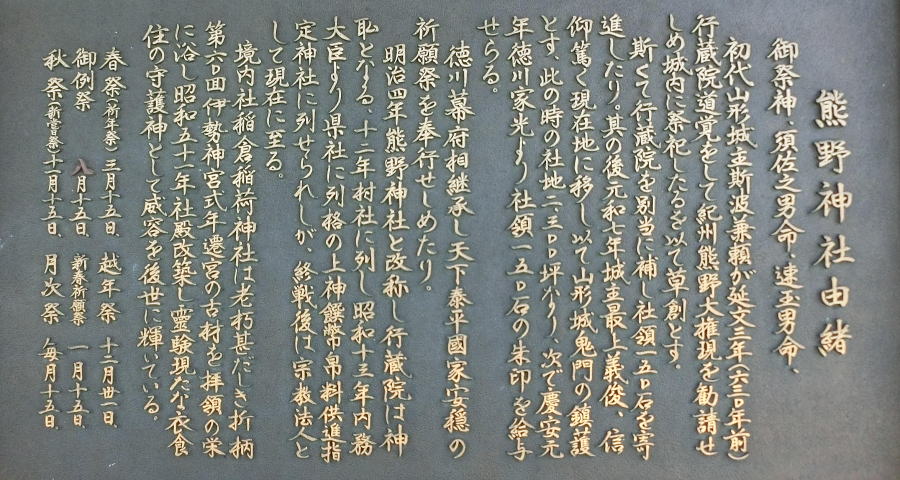 熊野神社由緒
御祭神、須佐之男命、速玉男命、
初代山形城主斯波兼頼が延文三年(六三〇年前)
行蔵院道覚をして紀州熊野大権現を勧請せ
しめ城内に祭祀したるを以て草創とす。
斯くて行蔵院を別当に補し社領一五〇石を寄
進したり。其の後元和七年城主最上義俊、信
仰篤く現在地に移し以て山形城鬼門の鎮護
とす、此の時の社地二、三〇〇坪なり、次で慶安元
年徳川家光より社領一五〇石の朱印を給与
せらる。
徳川幕府相継承し天下泰平國家安穏の
祈願祭を奉行せしめたり。
明治四年熊野神社と改称し行蔵院は神
恥となる、十二年村社に列し昭和十三年内務
大臣より県社に列格の上神饌幣帛料供進指
定神社に列せられしが、終戦後は宗教法人と
して現在に至る。
境内社稲倉稲荷神社は老朽甚だしき折柄
第六〇回伊勢神宮式年遷宮の古材を拝領の栄
に浴し昭和五十一年社殿改築し靈験現たな衣食
住の守護神として威容を後世に輝いている。
春祭(祈年祭)三月十五日、越年祭 十二月卅一日、
御例祭 八月十五日、新春祈願祭 一月十五日、
秋祭(新嘗祭)十一月十五日、月次祭 毎月十五日、